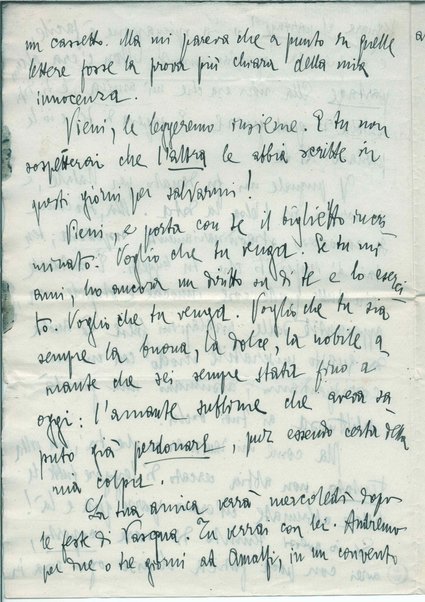 un cassetto. Ma mi pareva che a punto su quelle
lettere fosse la prova più chiara della mia
innocenza.
Vieni, le leggeremo insieme. E tu non
sospetterai che l'altra le abbia scritte in
questi giorni per salvarmi!
Vieni, e porta con te il biglietto incri
minato. Voglio che tu venga. Se tu mi
ami, ho ancora un diritto su di te e lo eserci
to. Voglio che tu venga. Voglio che tu sia
sempre la buona, la dolce, la nobile a
mante che sei sempre stata fino a
oggi: l'amante sublime che aveva sa
puto già perdonare, pur essendo certa della
mia colpa.
La tua amica verrà mercoledì dopo
le feste di Pasqua. Tu verrai con lei. Andremo
per due o tre giorni ad Amalfi, in un convento